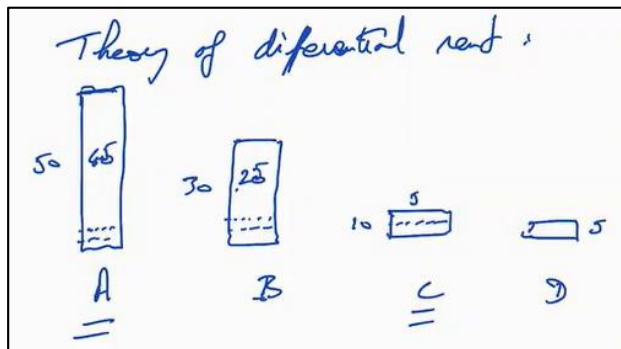 Theory of diferential rent :
50 45
30 25
10 5
5
A B C D